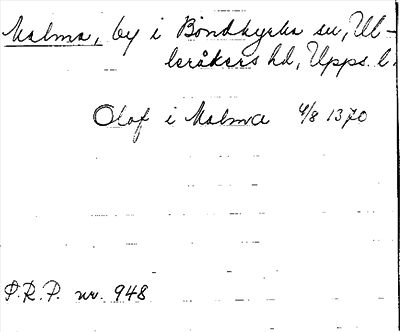 Malma, by i Bondkyrka sn, Ul-
leråkers hd, Upps. l.
Olof i Malma 4/8 1370
S.R.P. nr. 948